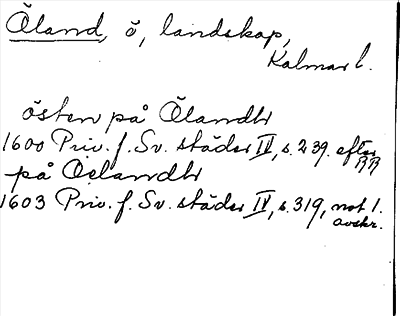 Öland, ö, landskap,
Kalmar l.
östen på Ölandh
1600 Priv. f. Sv. städer IV, s. 239. efter
på Oelandh
1603 Priv. f. Sv. städer IV, s. 319, not 1.
avskr.